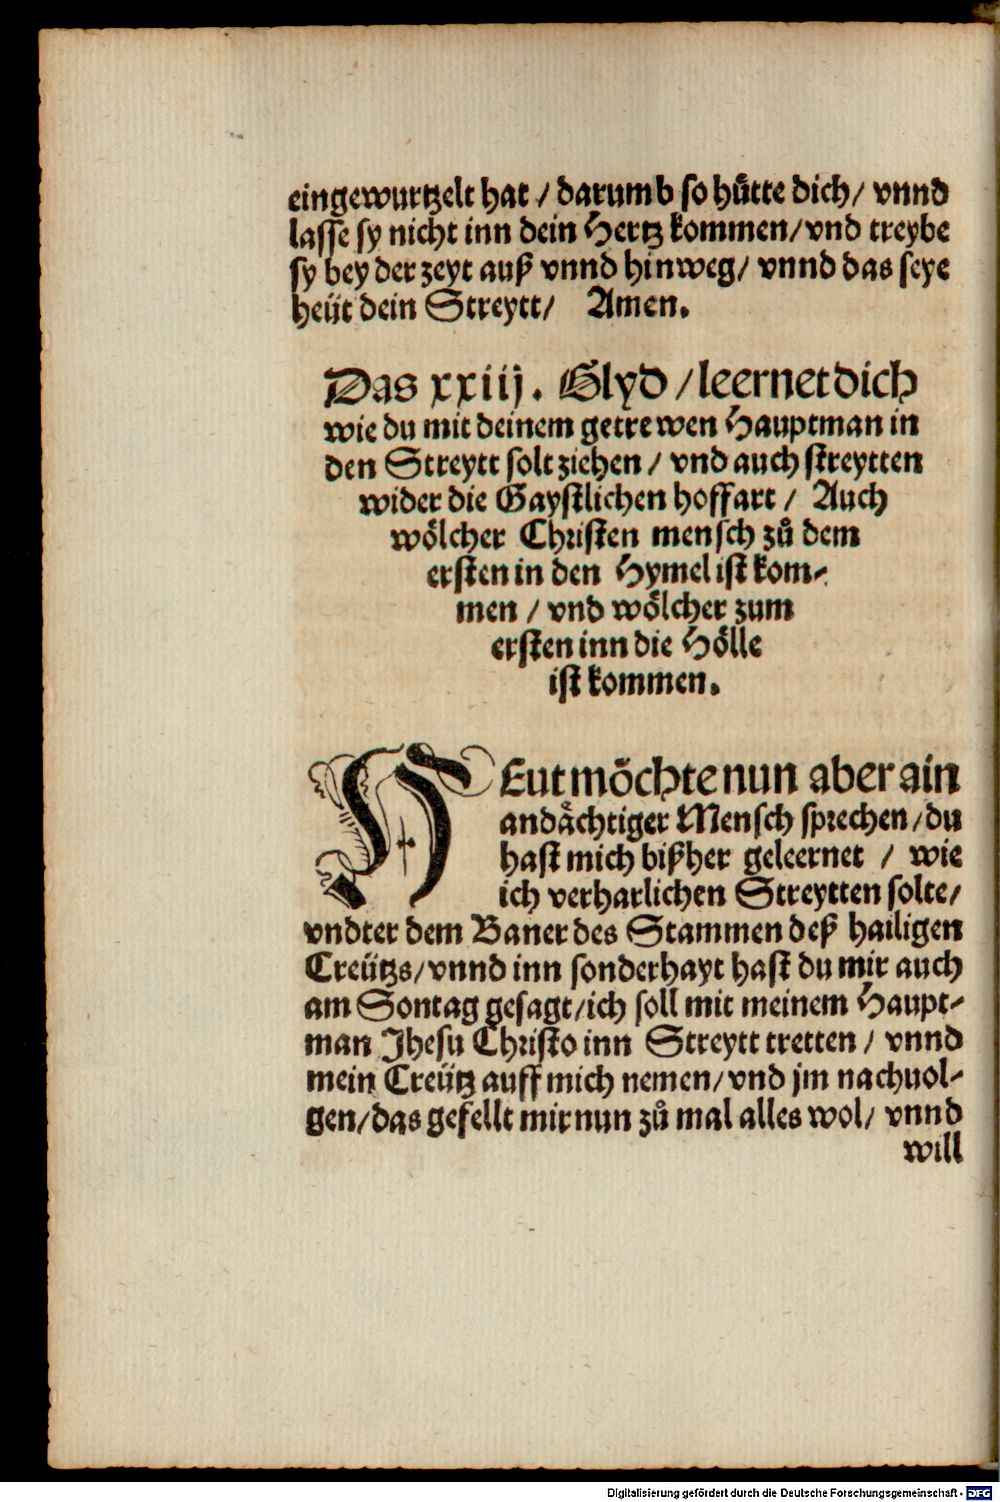 eingewurtzelt hat / darumb so hütte dich / vnnd
lasse sy nicht inn dein Hertz kommen / vnd treybe
sy bey der zeyt auß vnnd hinweg / vnnd das seye
heüt dein Streytt / Amen.
Das xxiij. Glyd / leernet dich
wie du mit deinem getrewen Hauptman in
den Streytt solt ziehen / vnd auch streytten
wider die Gaystlichen hoffart / Auch
woͤlcher Christen mensch zuͦ dem
ersten in den Hymel ist kom-
men / vnd woͤlcher zum
ersten inn die Hoͤlle
ist kommen.
HEut moͤchte nun aber ain
andaͤchtiger Mensch sprechen / du
hast mich bißher geleernet / wie
ich verharlichen Streytten solte /
vndter dem Baner des Stammen deß hailigen
Creützs / vnnd inn sonderhayt hast du mir auch
am Sontag gesagt / ich soll mit meinem Haupt-
man Jhesu Christo inn Streytt tretten / vnnd
mein Creütz auff mich nemen / vnd jm nachuol-
gen / das gefellt mir nun zuͦ mal alles wol / vnnd
will
Digitalisierung gefördert durch die Deutsche Forschungsgemeinschaft - DFG